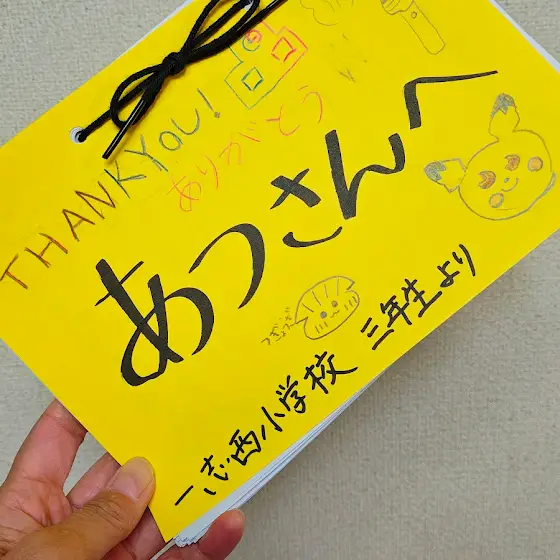 THANKYOU!
ありがとう
あっさんへ
一志西小学校 三年生より